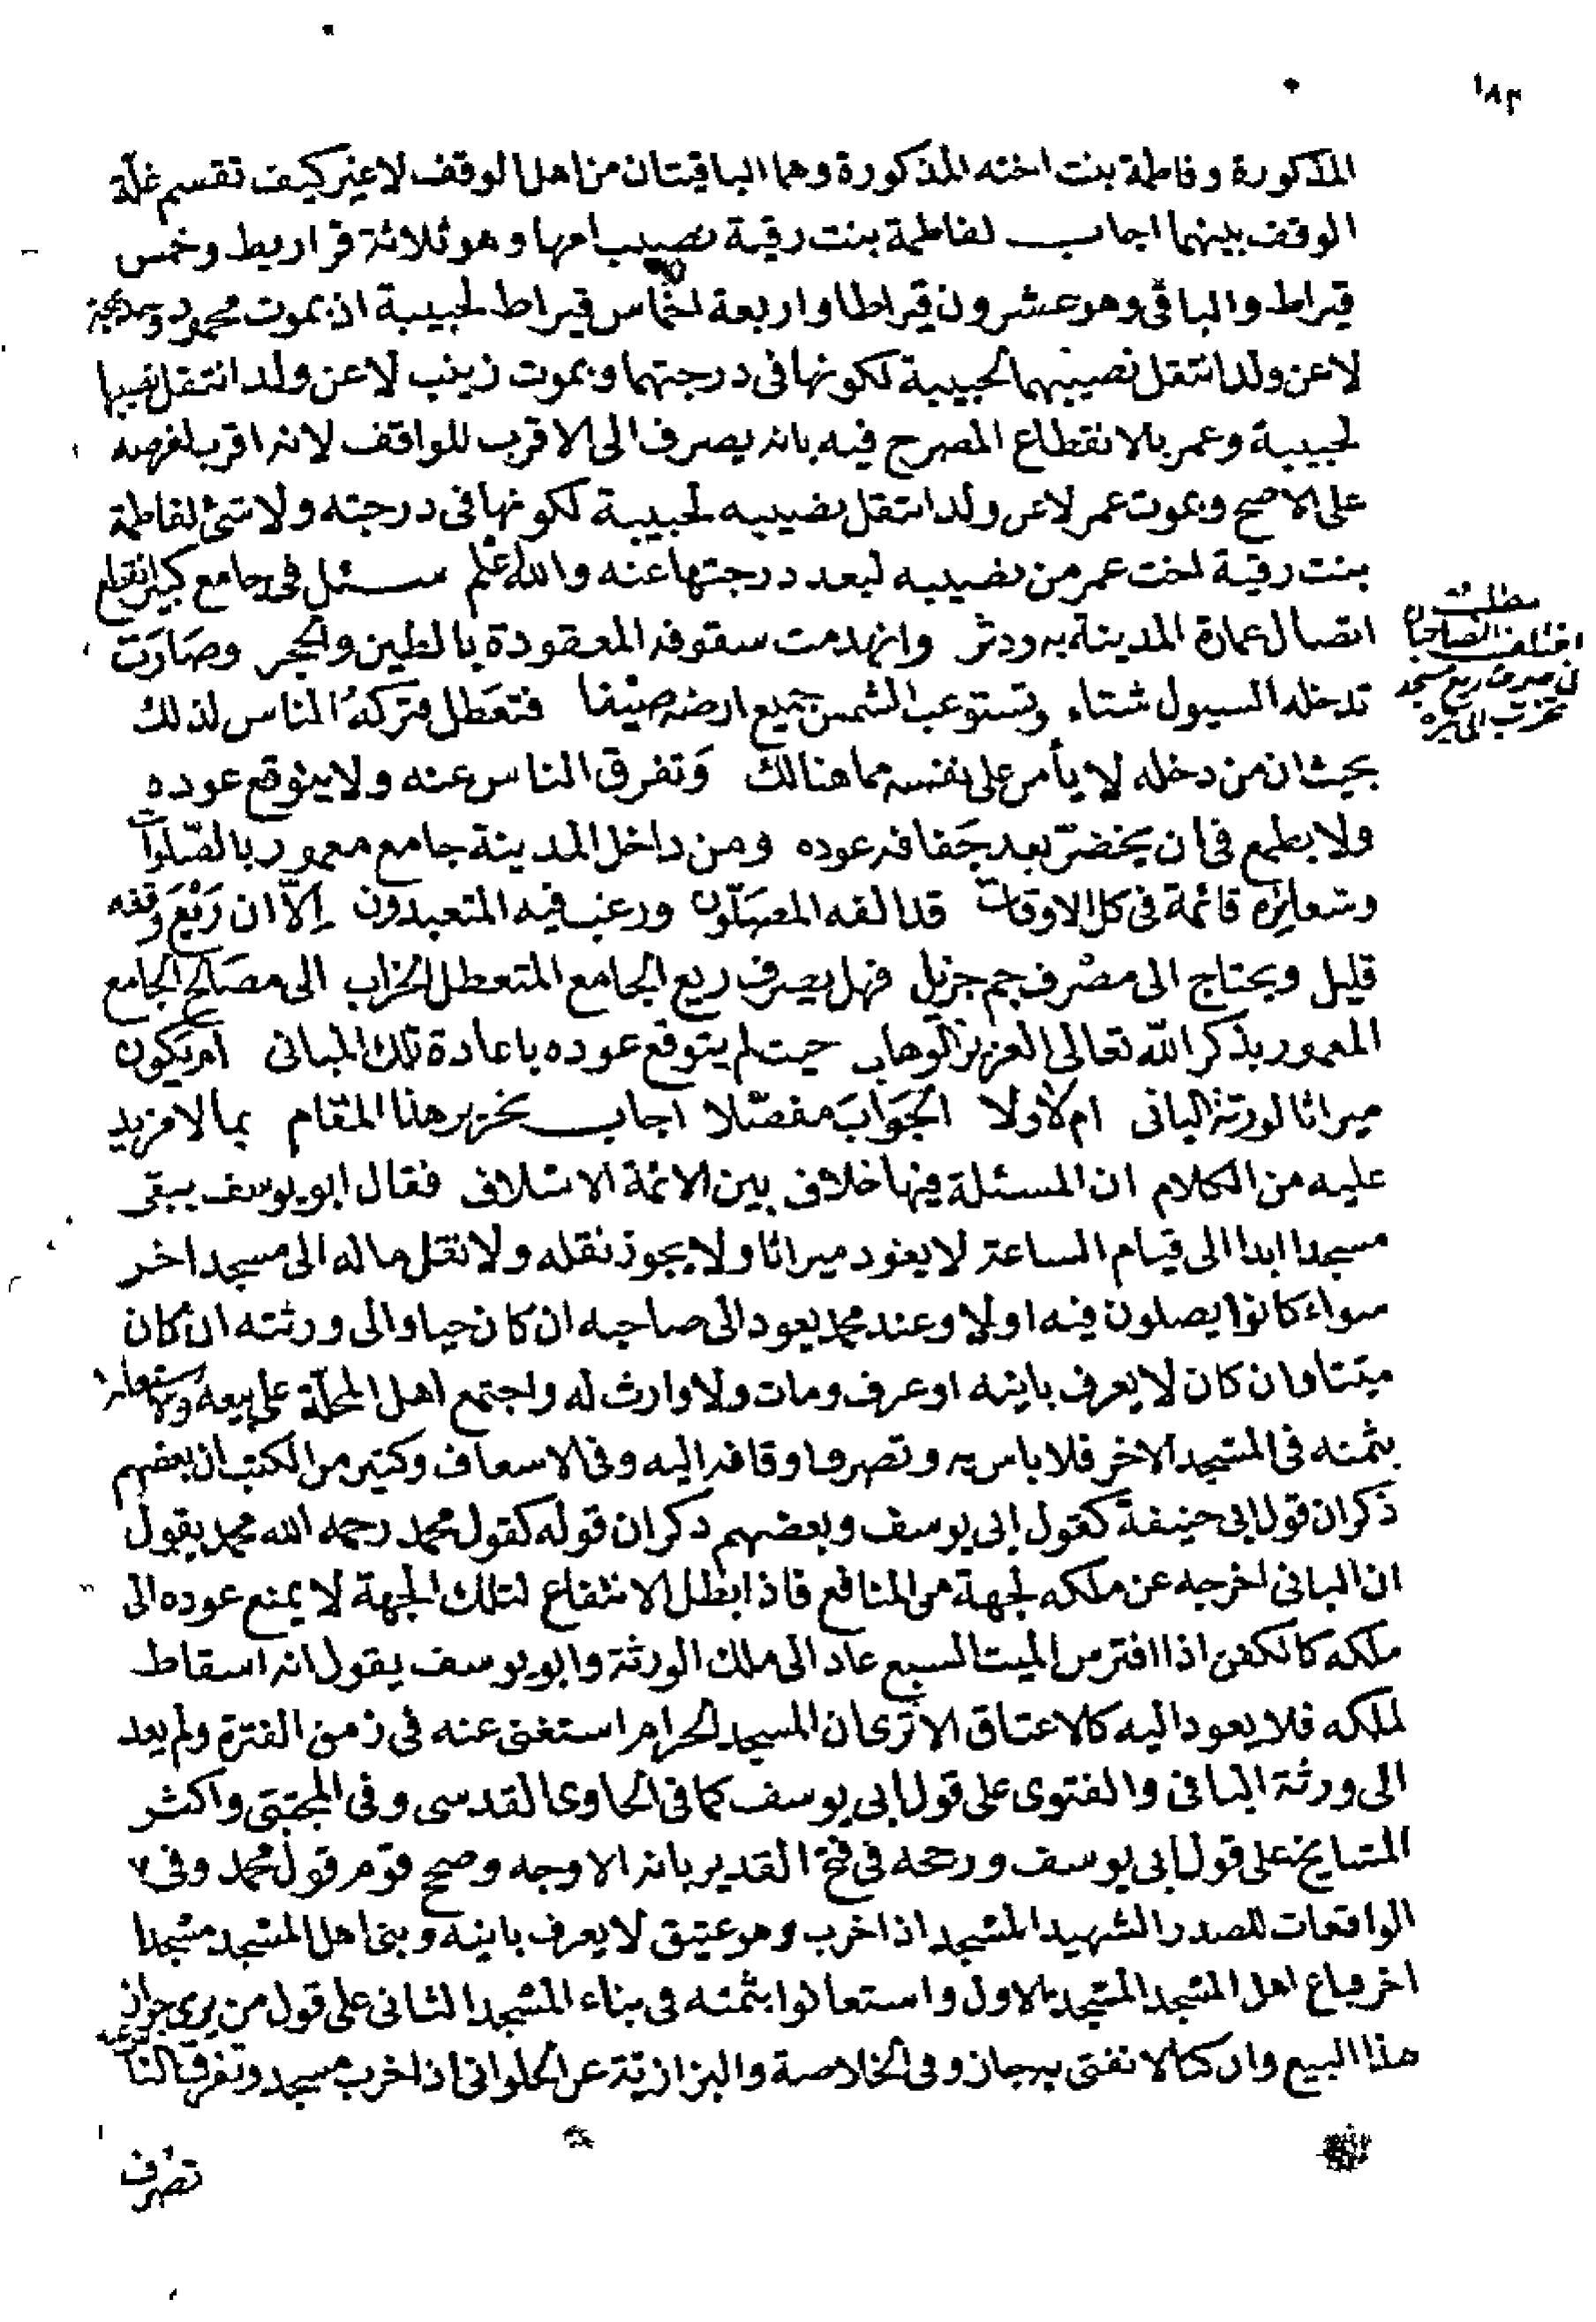 ١٨٣
المذكورة وفاطمة بنت اخته المذكورة وهما الباقيتان من اهل الوقف لا غير كيف تقسم غلة
الوقف بينهما اجاب لفاطمة بنت رقية نصيب امها وهو ثلاثة قراريط وخمس
قيراط والباقي وهو عشرون قيراطا واربعة اخماس قيراط لحبيبة اذ بموت محمود وخديجة
لا عن ولد انتقل نصيبهما لحبيبة لكونها في درجتهما وبموت زينب لا عن ولد انتقل نصيبها
لحبيبة وعمر بالانقطاع المصرح فيه بانه يصرف الى الاقرب للواقف لانه اقرب لغرضه
على الاصح وبموت عمر لا عن ولد انتقل نصيبه لحبيبة لكونها في درجته ولا شئ لفاطمة
بنت رقية اخت عمر من نصيبه لبعد درجتها عنه والله اعلم سئل في جامع كبير انقطع
اتصال عمارة المدينة به ودثر وانهدمت سقوفه المعقودة بالطين والحجر وصارت
تدخله السيول شتاء وتستوعب الشمس جميع ارضه صيفا فتعطل وتركه الناس لذلك
بحيث ان من دخله لا يأمن على نفسه مما هنالك وتفرق الناس عنه ولا يتوقع عوده
ولا يطمع في ان يخضر بعد جفافه عوده ومن داخل المدينة جامع معمور بالصلوات
وشعائره قائمة في كل الاوقات قد الفه المصلون ورغب فيه المتعبدون الا ان ريع وقفه
قليل ويحتاج الى مصرف جم جزيل فهل يصرف ريع الجامع المتعطل الخراب الى مصالح الجامع
المعمور بذكر الله تعالى العزيز الوهاب حيث لم يتوقع عوده باعادة تلك المباني ام يكون
ميراثا لورثة الباني ام لا ولا الجواب مفصلا اجاب تحرير هذا المقام بما لا مزيد
عليه من الكلام ان المسئلة فيها خلاف بين الائمة الاسلاف فقال ابو يوسف يبقى
مسجدا ابدا الى قيام الساعة لا يعود ميراثا ولا يجوز نقله ولا نقل ماله الى مسجد اخر
سواء كانوا يصلون فيه او لا وعند محمد يعود الى صاحبه ان كان حيا والى ورثته ان كان
ميتا وان كان لا يعرف بانيه او عرف ومات ولا وارث له واجتمع اهل المحلة على بيعه والاستعانة
بثمنه في المسجد الاخر فلا باس به وتصرف اوقافه اليه وفي الاسعاف وكثير من الكتب ان بعضهم
ذكر ان قول ابي حنيفة كقول ابي يوسف وبعضهم ذكر ان قوله كقول محمد رحمه الله محمد يقول
ان الباني اخرجه عن ملكه لجهة من المنافع فاذا بطل الانتفاع لتلك الجهة لا يمنع عوده الى
ملكه كالكفن اذا افترس الميت السبع عاد الى ملك الورثة وابو يوسف يقول انه اسقاط
لملكه فلا يعود اليه كالاعتاق الا ترى ان المسجد الحرام استغنى عنه في زمن الفترة ولم يعد
الى ورثة الباني والفتوى على قول ابي يوسف كما في الحاوي القدسي وفي المجتبى واكثر
المشايخ على قول ابي يوسف ورجحه في فتح القدير بانه الاوجه وصحح قوم قول محمد وفي
الواقعات للصدر الشهيد المسجد اذا خرب وهو عتيق لا يعرف بانيه وبنى اهل المسجد مسجدا
اخر فباع اهل المسجد المسجد الاول واستعانوا بثمنه في بناء المسجد الثاني على قول من يرى جواز
هذا البيع وان كنا لا نفتي به جاز وفي الخلاصة والبزازية عن الحلواني اذا خرب مسجد وتفرق الناس عنه
تصرف
مطلب
اختلف الصاحبان
في صرف ريع مسجد
خرب الى غيره